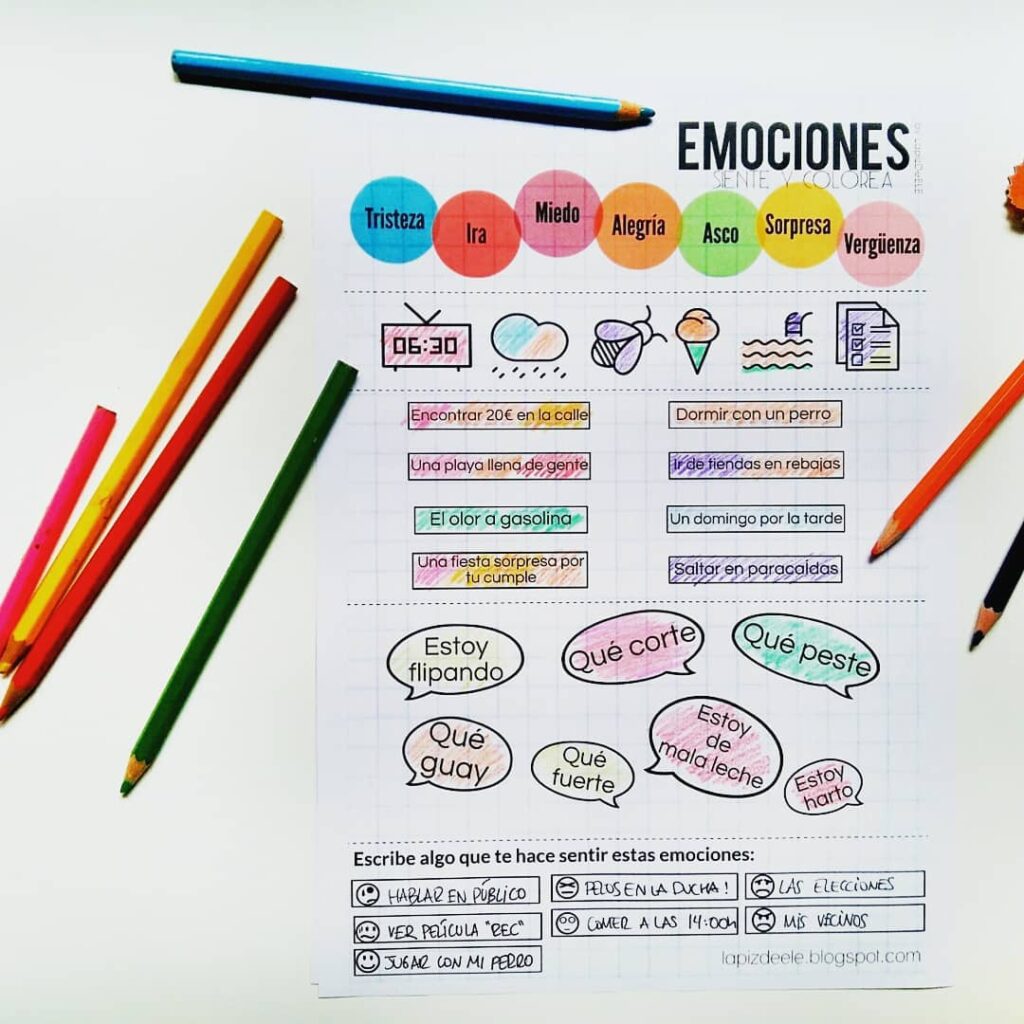 EMOCIONES
SIENTE Y COLOREA
by LápizDeELE
Tristeza
Ira
Miedo
Alegría
Asco
Sorpresa
Vergüenza
06:30
Encontrar 20€ en la calle
Dormir con un perro
Una playa llena de gente
Ir de tiendas en rebajas
El olor a gasolina
Un domingo por la tarde
Una fiesta sorpresa por
tu cumple
Saltar en paracaídas
Estoy
flipando
Qué corte
Qué peste
Qué
guay
Qué
fuerte
Estoy
de
mala leche
Estoy
harto
Escribe algo que te hace sentir estas emociones:
HABLAR EN PÚBLICO
PELOS EN LA DUCHA!
LAS ELECCIONES
VER PELÍCULA "REC"
COMER A LAS 14:00h
MIS VECINOS
JUGAR CON MI PERRO
lapizdeele.blogspot.com